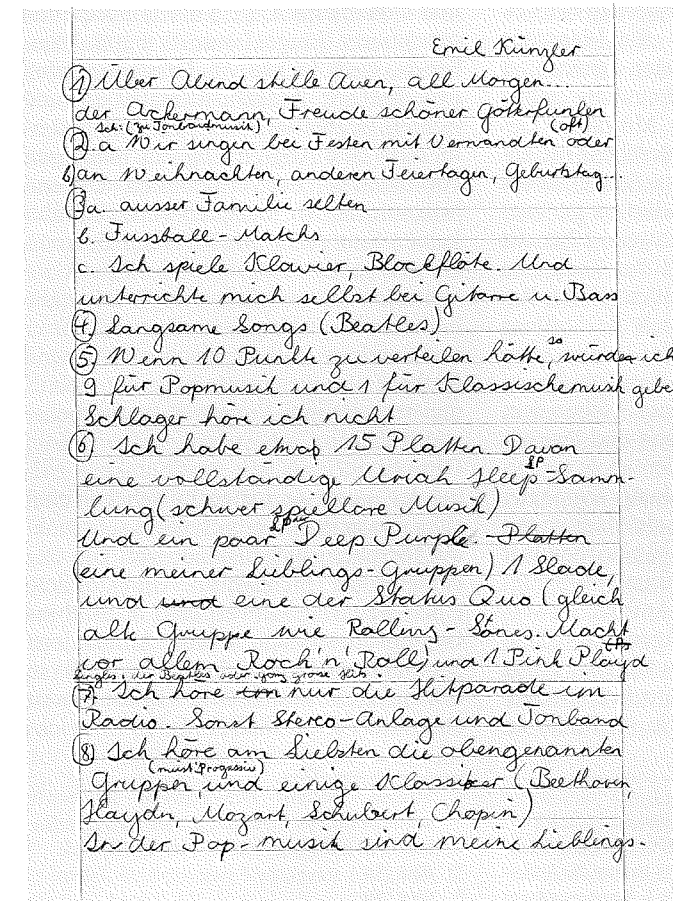 Emil Künzler
① Über Abend stille Auen, all Morgen...
der Ackermann, Freude schöner Göterfunken
Sch: (zu Tonbandmusik) (oft)
② a Wir singen bei Festen mit Verwandten oder
b) an Weihnachten, anderen Feiertagen, Geburtstag...
③ a. ausser Familie selten
b. Fussball-Matchs
c. Ich spiele Klavier, Blockflöte. Und
unterrichte mich selbst bei Gitarre u. Bass
④ Langsame Songs (Beatles)
⑤ Wenn 10 Punkte zu verteilen hätte, so würde ich
9 für Popmusik und 1 für Klassischemusik gebe
Schlager höre ich nicht
⑥ Ich habe etwa 15 Platten Davon
eine vollständige Uriah Heep LP-Samm-
lung (schwer spielbare Musik)
Und ein paar LP Deep Purple Platten
(eine meiner Lieblings-Gruppen) 1 Slade,
und und eine der Status Quo (gleich
alte Gruppe wie Rolling-Stones. Macht
vor allem Rock'n'Roll) und 1 Pink Floyd (LPs)
Singles: der Beatles oder ganz grosse Hits.
⑦ Ich höre im nur die Hitparade im
Radio. Sonst Stereo-Anlage und Tonband
⑧ Ich höre am Liebsten die obengenannten
(meist Progressiv)
Gruppen und einige Klassiker (Beethoven,
Haydn, Mozart, Schubert, Chopin)
In der Pop-musik sind meine Lieblings-